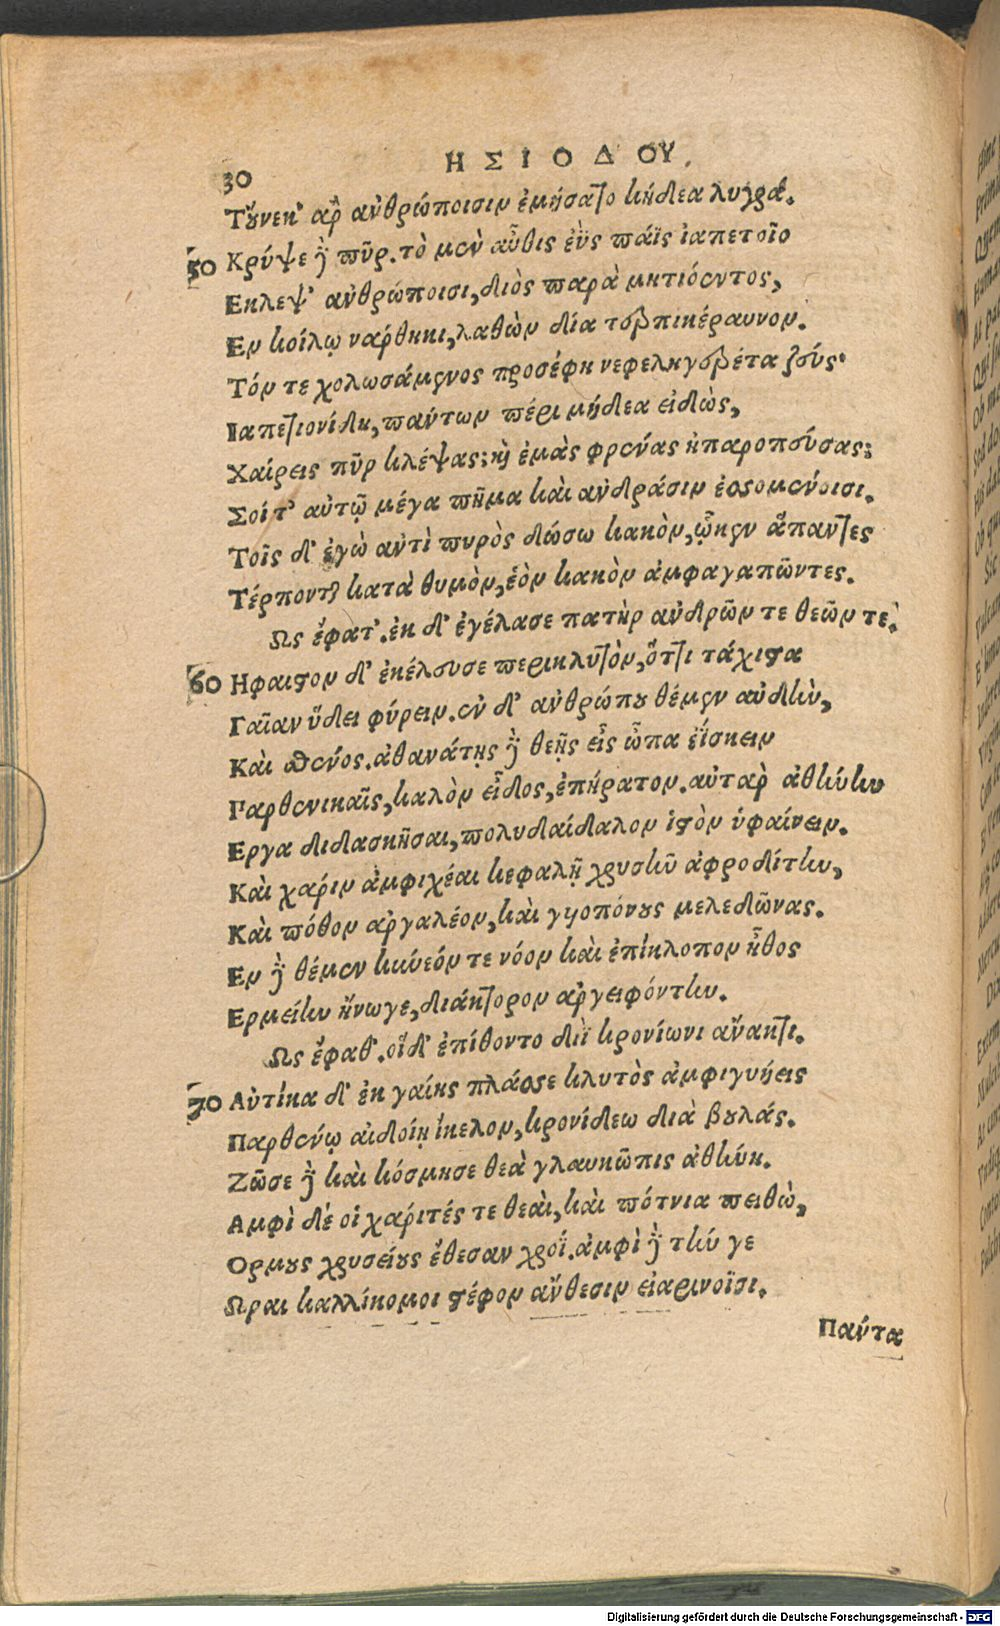 30
ΗΣΙΟΔΟΥ.
Τούνεκ' αρ' ανθρώποισιν ἐμήσατο κήδεα λυγρά.
50 Κρύψε δὲ πῦρ. τὸ μὲν αὖθις ἐῢς πάϊς ἰαπετοῖο
Εκλεψ' ανθρώποισι, διὸς παρὰ μητιόεντος,
Εν κοίλῳ νάρθηκι, λαθὼν δία τερπικέραυνον.
Τόν τε χολωσάμενος προσέφη νεφεληγερέτα ζεύς·
Ιαπετιονίδη, πάντων πέρι μήδεα εἰδὼς,
Χαίρεις πῦρ κλέψας; καὶ ἐμὰς φρένας ἠπαροπεύσας;
Σοίτ' αὐτῷ μέγα πῆμα καὶ ανδράσιν ἐσσομένοισι.
Τοῖς δ' ἐγὼ αντὶ πυρὸς δώσω κακὸν, ᾧκεν ἅπαντες
Τέρπονται κατὰ θυμὸν, ἑὸν κακὸν ἀμφαγαπῶντες.
Ως ἔφατ'. ἐκ δ' ἐγέλασε πατὴρ ανδρῶν τε θεῶν τε.
60 Ηφαιστον δ' ἐκέλευσε περικλυτὸν, ὅττι τάχιστα
Γαῖαν ὕδει φύρειν. ἐν δ' ανθρώπου θέμεν αὐδὴν,
Καὶ σθένος. ἀθανάτῃς δὲ θεῇς εἰς ὦπα ἐΐσκειν
Παρθενικαῖς, καλὸν εἶδος, ἐπήρατον. αὐταρ ἀθήνην
Εργα διδασκῆσαι, πολυδαίδαλον ἱστὸν ὑφαίνειν.
Καὶ χάριν ἀμφιχέαι κεφαλῇ χρυσῆν ἀφροδίτην,
Καὶ πόθον αργαλέον, καὶ γυιοπόνους μελεδῶνας.
Εν δὲ θέμεν κύνεόν τε νόον καὶ ἐπίκλοπον ἦθος
Ερμείην ἤνωγε, διάκτορον αργειφόντην.
Ως ἔφαθ'. οἵδ' ἐπίθοντο διῒ κρονίωνι ἄνακτι.
70 Αὐτίκα δ' ἐκ γαίης πλάσσε κλυτὸς ἀμφιγυήεις
Παρθένῳ αἰδοίῃ ἵκελον, κρονίδεω διὰ βουλάς.
Ζῶσε δὲ καὶ κόσμησε θεὰ γλαυκῶπις ἀθήνη.
Αμφὶ δέ οἱ χάριτές τε θεαὶ, καὶ πότνια πειθὼ,
Ορμους χρυσείους ἔθεσαν χροΐ. ἀμφὶ δὲ τήν γε
Ωραι καλλίκομοι στέφον ἄνθεσιν εἰαρινοῖσι.
Πάντα
Digitalisierung gefördert durch die Deutsche Forschungsgemeinschaft - DFG